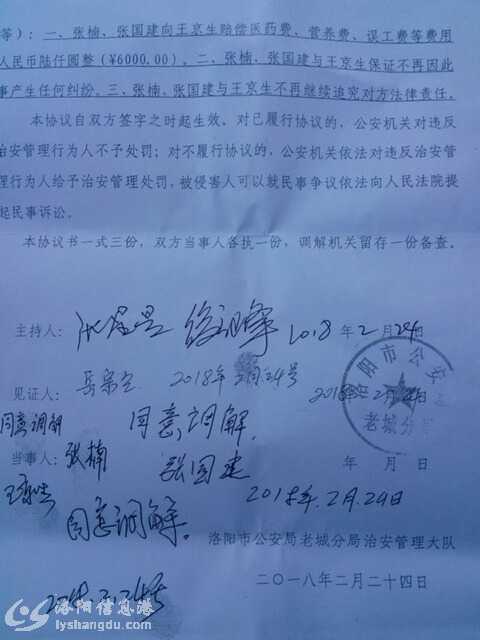 等）：一、张楠、张国建向王京生赔偿医药费、营养费、误工费等费用
人民币陆仟圆整（¥6000.00）。二、张楠、张国建与王京生保证不再因此
事产生任何纠纷。三、张楠、张国建与王京生不再继续追究对方法律责任。
本协议自双方签字之时起生效。对已履行协议的，公安机关对违反
治安管理行为人不予处罚；对不履行协议的，公安机关依法对违反治安管
理行为人给予治安管理处罚，被侵害人可以就民事争议依法向人民法院提
起民事诉讼。
本协议书一式三份，双方当事人各执一份，调解机关留存一份备查。
主持人： 2018年2月24日
洛阳市公安
老城分局
见证人： 2018年2月24号
同意调解 同意调解。
当事人：张楠 张国建 年 月 日
2018年.2月.24日
同意调解。
洛阳市公安局老城分局治安管理大队
二〇一八年二月二十四日
2018.2.24号
洛阳信息港
lyshangdu.com